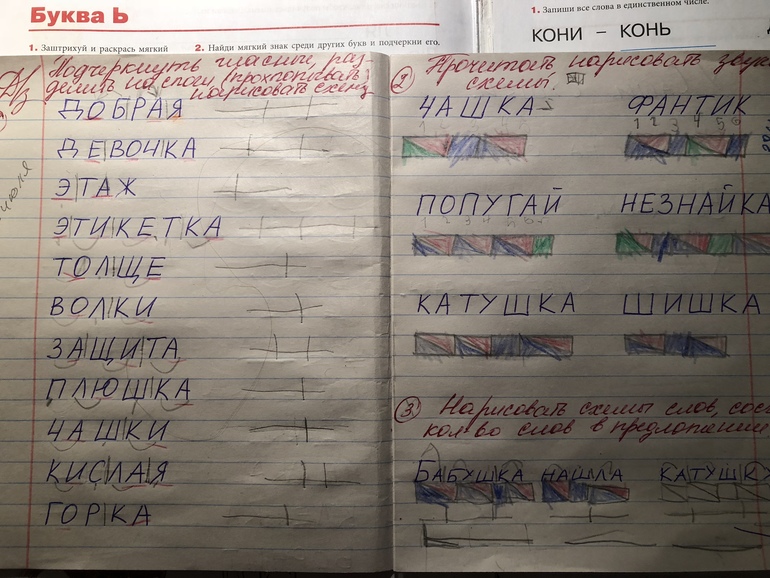 Буква Ь
1. Заштрихуй и раскрась мягкий
2. Найди мягкий знак среди других букв и подчеркни его.
1. Запиши все слова в единственном числе.
КОНИ – КОНЬ
Д/з Подчеркнуть гласные, раз-
делить на слоги (прохлопывать)
нарисовать схему
ДОБРАЯ
ДЕВОЧКА
ЭТАЖ
ЭТИКЕТКА
ТОЛЩЕ
ВОЛКИ
ЗАЩИТА
ПЛЮШКА
ЧАШКИ
КИСЛАЯ
ГОРКА
2 Прочитать нарисовать звук
схемы.
ЧАШКА ФАНТИК
1 2 3 4 5 6
ПОПУГАЙ НЕЗНАЙКА
КАТУШКА ШИШКА
3. Нарисовать схемы слов, сос
кол-во слов в предложении
БАБУШКА НАШЛА КАТУШКУ